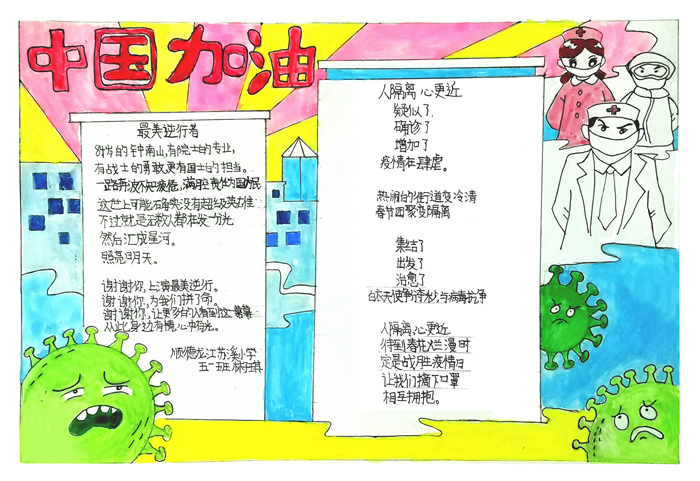 中国加油
最美逆行者
84岁的钟南山,有院士的专业,
有战士的勇敢,更有国士的担当。
一路奔波不知疲倦,满腔
这世上可能确实没有超级英雄
不过就是无数人都在发一份光
然后汇成星河。
照亮明天。
谢谢你,上演最美逆行。
谢谢你,为我们拼了命。
谢谢你,让更多的人看到这一幕幕
从此身边有情,心中有光。
顺德龙江苏溪小学
五(1)班
人隔离,心更近
疑似了,
确诊了
增加了
疫情在肆虐。
热闹的街道变冷清
春节团聚变隔离
集结了
出发了
治愈了
白衣天使争分夺秒与病毒抗争
人隔离,心更近
待到春花烂漫时
定是战胜疫情日
让我们摘下口罩
相互拥抱。